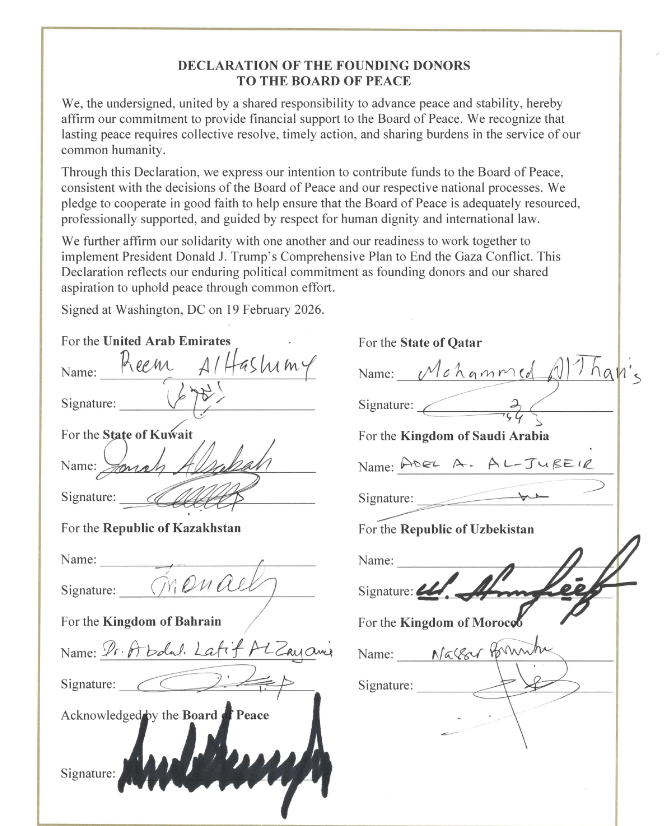 DECLARATION OF THE FOUNDING DONORS
TO THE BOARD OF PEACE
We, the undersigned, united by a shared responsibility to advance peace and stability, hereby
affirm our commitment to provide financial support to the Board of Peace. We recognize that
lasting peace requires collective resolve, timely action, and sharing burdens in the service of our
common humanity.
Through this Declaration, we express our intention to contribute funds to the Board of Peace,
consistent with the decisions of the Board of Peace and our respective national processes. We
pledge to cooperate in good faith to help ensure that the Board of Peace is adequately resourced,
professionally supported, and guided by respect for human dignity and international law.
We further affirm our solidarity with one another and our readiness to work together to
implement President Donald J. Trump's Comprehensive Plan to End the Gaza Conflict. This
Declaration reflects our enduring political commitment as founding donors and our shared
aspiration to uphold peace through common effort.
Signed at Washington, DC on 19 February 2026.
For the United Arab Emirates
Name: Reem AlHashimy
Signature:
For the State of Kuwait
Name: Alsabah
Signature:
For the Republic of Kazakhstan
Name:
Signature:
For the Kingdom of Bahrain
Name: Dr. Abdul Latif AlZayani
Signature:
Acknowledged by the Board of Peace
Signature:
For the State of Qatar
Name: Mohammed AlThani
Signature:
For the Kingdom of Saudi Arabia
Name: ADEL A. AL-JUBEIR
Signature:
For the Republic of Uzbekistan
Name:
Signature:
For the Kingdom of Morocco
Name: Nasser
Signature: